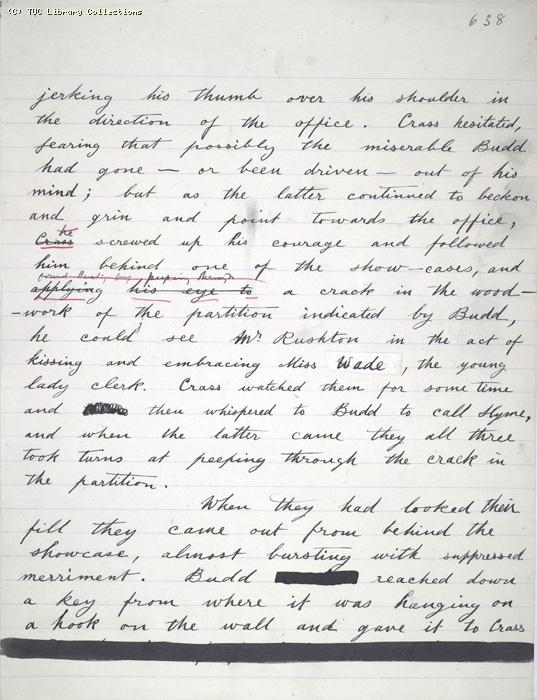 (C) TUC Library Collections
638
jerking his thumb over his shoulder in
the direction of the office. Crass hesitated,
fearing that possibly the miserable Budd
had gone — or been driven — out of his
mind; but as the latter continued to beckon
and grin and point towards the office,
he
Crass screwed up his courage and followed
him behind one of the show-cases, and
peeping through
applying his eye to a crack in the wood-
-work of the partition indicated by Budd,
he could see Mr Rushton in the act of
kissing and embracing Miss Wade, the young
lady clerk. Crass watched them for some time
and then whispered to Budd to call Slyme,
and when the latter came they all three
took turns at peeping through the crack in
the partition.
When they had looked their
fill they came out from behind the
showcase, almost bursting with suppressed
merriment. Budd reached down
a key from where it was hanging on
a hook on the wall and gave it to Crass